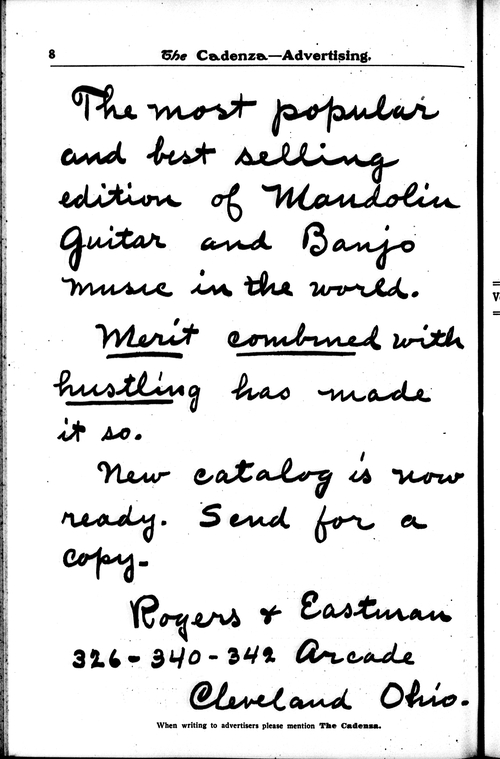 8 The Cadenza—Advertising.
The most popular
and best selling
edition of Mandolin
Guitar and Banjo
music in the world.
Merit combined with
hustling has made
it so.
New catalog is now
ready. Send for a
copy-
Rogers & Eastman
326-340-342 Arcade
Cleveland Ohio.
When writing to advertisers please mention The Cadenza.
V